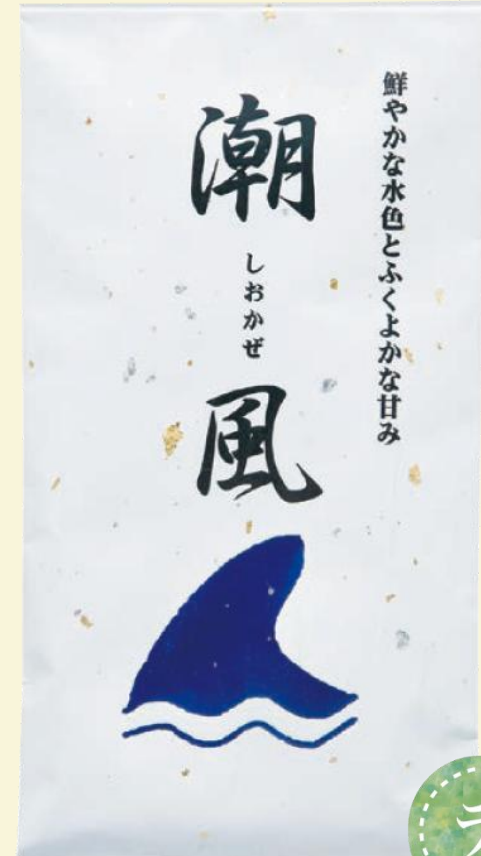 鮮やかな水色とふくよかな甘み
潮
しおかぜ
風